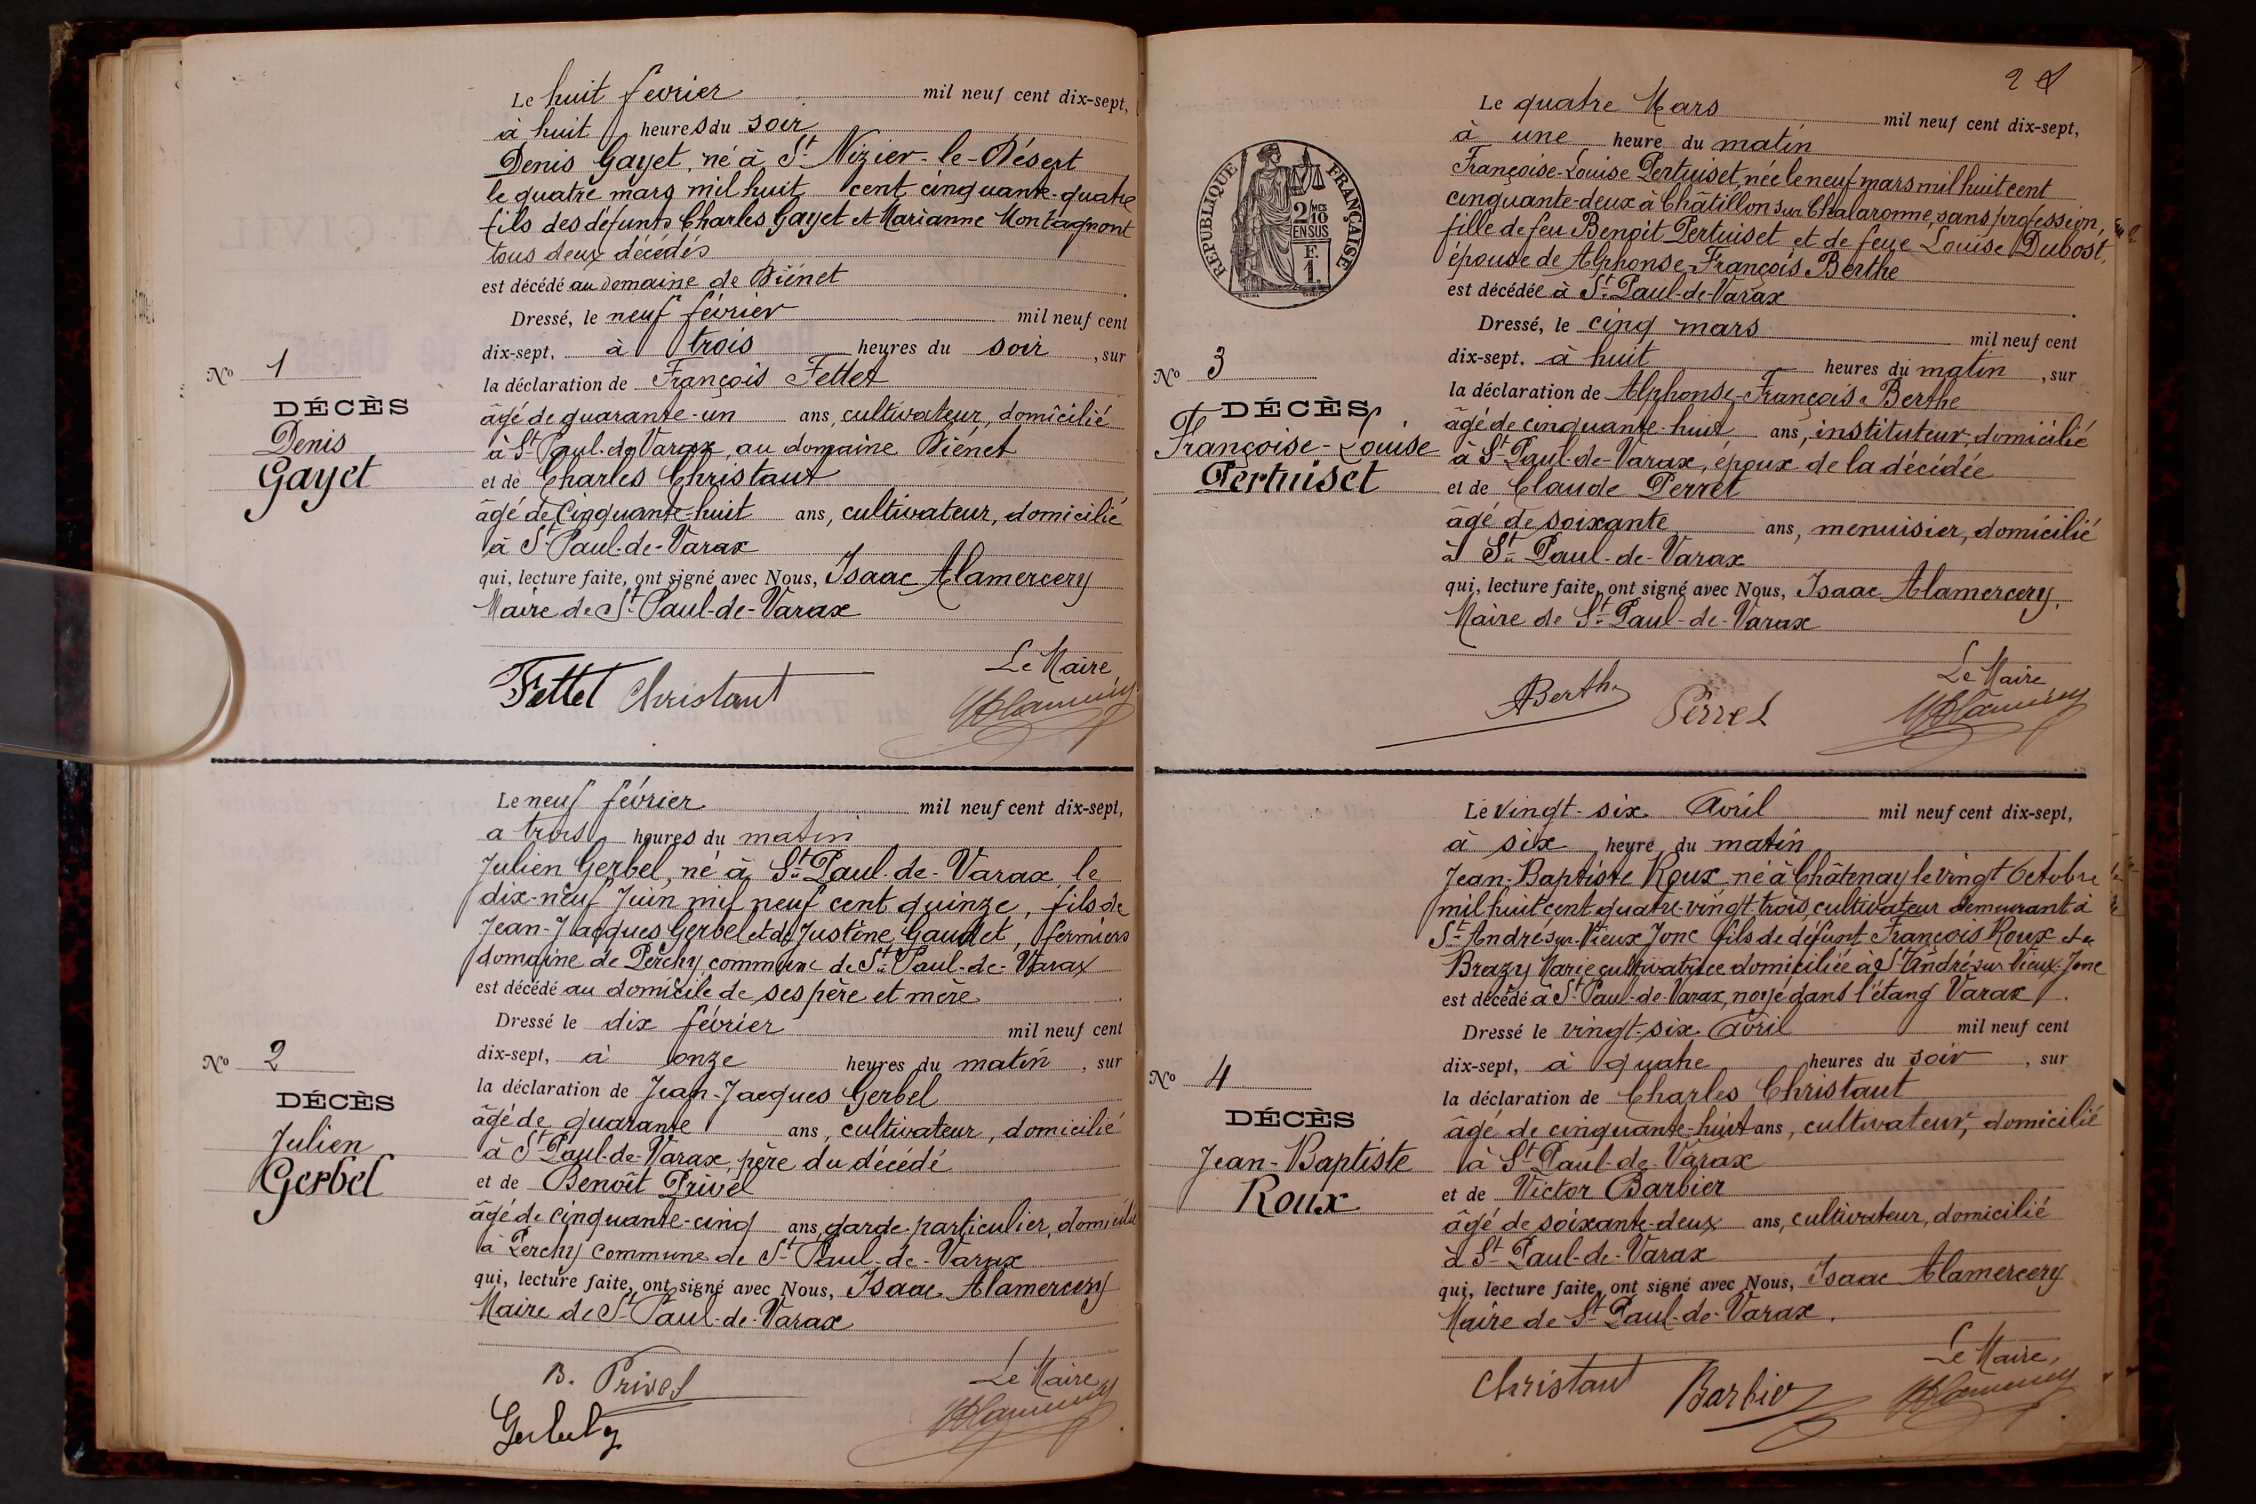 Le huit février mil neuf cent dix-sept,
à huit heures du soir
Denis Gayet, né à St Nizier-le-Désert
le quatre mars mil huit cent cinquante-quatre
fils des défunts Charles Gayet et Marianne Montagnont
tous deux décédés
est décédé au domaine de Biénet
Dressé, le neuf février mil neuf cent
dix-sept, à trois heures du soir, sur
la déclaration de François Fettet
âgé de quarante-un ans, cultivateur, domicilié
à St Paul-de-Varax, au domaine Biénet
et de Charles Christaut
âgé de cinquante-huit ans, cultivateur, domicilié
à St Paul-de-Varax
qui, lecture faite, ont signé avec Nous, Isaac Alamercery
Maire de St Paul-de-Varax
Le Maire
Fettet Christaut
No 1
DÉCÈS
Denis
Gayet
Le neuf février mil neuf cent dix-sept,
a trois heures du matin
Julien Gerbel, né à St Paul-de-Varax, le
dix-neuf Juin mil neuf cent quinze, fils de
Jean-Jacques Gerbel et de Justine Gaudet, fermiers
domaine de Perchy commune de St Paul-de-Varax
est décédé au domicile de ses père et mère
Dressé le dix février mil neuf cent
dix-sept, à onze heures du matin, sur
la déclaration de Jean-Jacques Gerbel
âgé de quarante ans, cultivateur, domicilié
à St Paul-de-Varax, père du décédé
et de Benoît Privel
âgé de cinquante-cinq ans, garde-particulier, domicilié
à Perchy commune de St Paul-de-Varax
qui, lecture faite, ont signé avec Nous, Isaac Alamercery
Maire de St Paul-de-Varax
B. Privel Le Maire
No 2
DÉCÈS
Julien
Gerbel
2
Le quatre Mars mil neuf cent dix-sept,
à une heure du matin
Françoise-Louise Pertuiset, née le neuf mars mil huit cent
cinquante-deux à Châtillon sur Chalaronne, sans profession,
fille de feu Benoît Pertuiset et de feue Louise Dubost,
épouse de Alphonse-François Berthe
est décédée à St Paul-de-Varax
Dressé, le cinq mars mil neuf cent
dix-sept, à huit heures du matin, sur
la déclaration de Alphonse-François Berthe
âgé de cinquante-huit ans, instituteur, domicilié
à St Paul-de-Varax, époux de la décédée
et de Claude Perret
âgé de soixante ans, menuisier, domicilié
à St Paul-de-Varax
qui, lecture faite, ont signé avec Nous, Isaac Alamercery,
Maire de St Paul-de-Varax
Le Maire
ABerthe Perret
RÉPUBLIQUE FRANÇAISE
2/10
EN SUS
F.
1.
No 3
DÉCÈS
Françoise-Louise
Pertuiset
Le vingt-six Avril mil neuf cent dix-sept,
à six heure du matin
Jean-Baptiste Roux, né à Châtenay le vingt Octobre
mil huit cent quatre-vingt-trois, cultivateur demeurant à
St André sur Vieux Jonc fils de défunt François Roux et de
Breazy Marie cultivatrice domiciliée à St André sur Vieux-Jonc
est décédé à St Paul-de-Varax, noyé dans l'étang Varax.
Dressé le vingt-six Avril mil neuf cent
dix-sept, à quatre heures du soir, sur
la déclaration de Charles Christaut
âgé de cinquante-huit ans, cultivateur, domicilié
à St Paul-de-Varax
et de Victor Barbier
âgé de soixante-deux ans, cultivateur, domicilié
à St Paul-de-Varax
qui, lecture faite, ont signé avec Nous, Isaac Alamercery
Maire de St Paul-de-Varax.
Le Maire,
Christaut Barbier
No 4
DÉCÈS
Jean-Baptiste
Roux